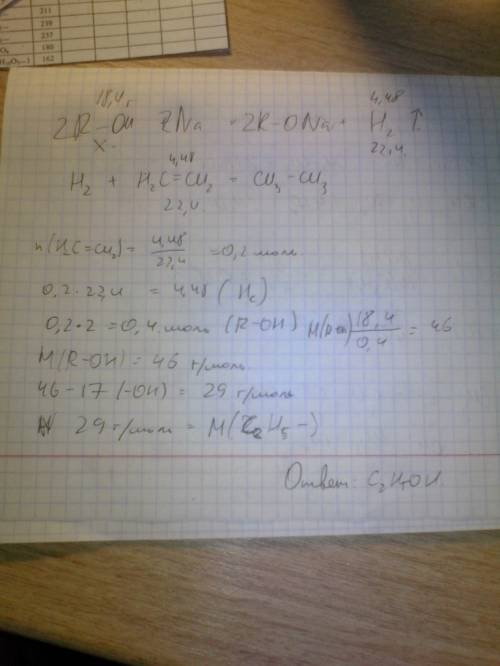 211
239
237
180
162
18,4 г 4,48
2R-OH 2Na = 2R-ONa + H₂ ↑
x 22,4
4,48
H₂ + H₂C=CH₂ = CH₃-CH₃
22,4
n(H₂C=CH₂) = 4,48/22,4 = 0,2 моль
0,2·22,4 = 4,48 (H₂)
0,2·2 = 0,4 моль (R-OH) M(R-OH) 18,4/0,4 = 46
M(R-OH) = 46 г/моль
46-17(-OH) = 29 г/моль
29 г/моль = M(C₂H₅-)
Ответ: C₂H₅OH